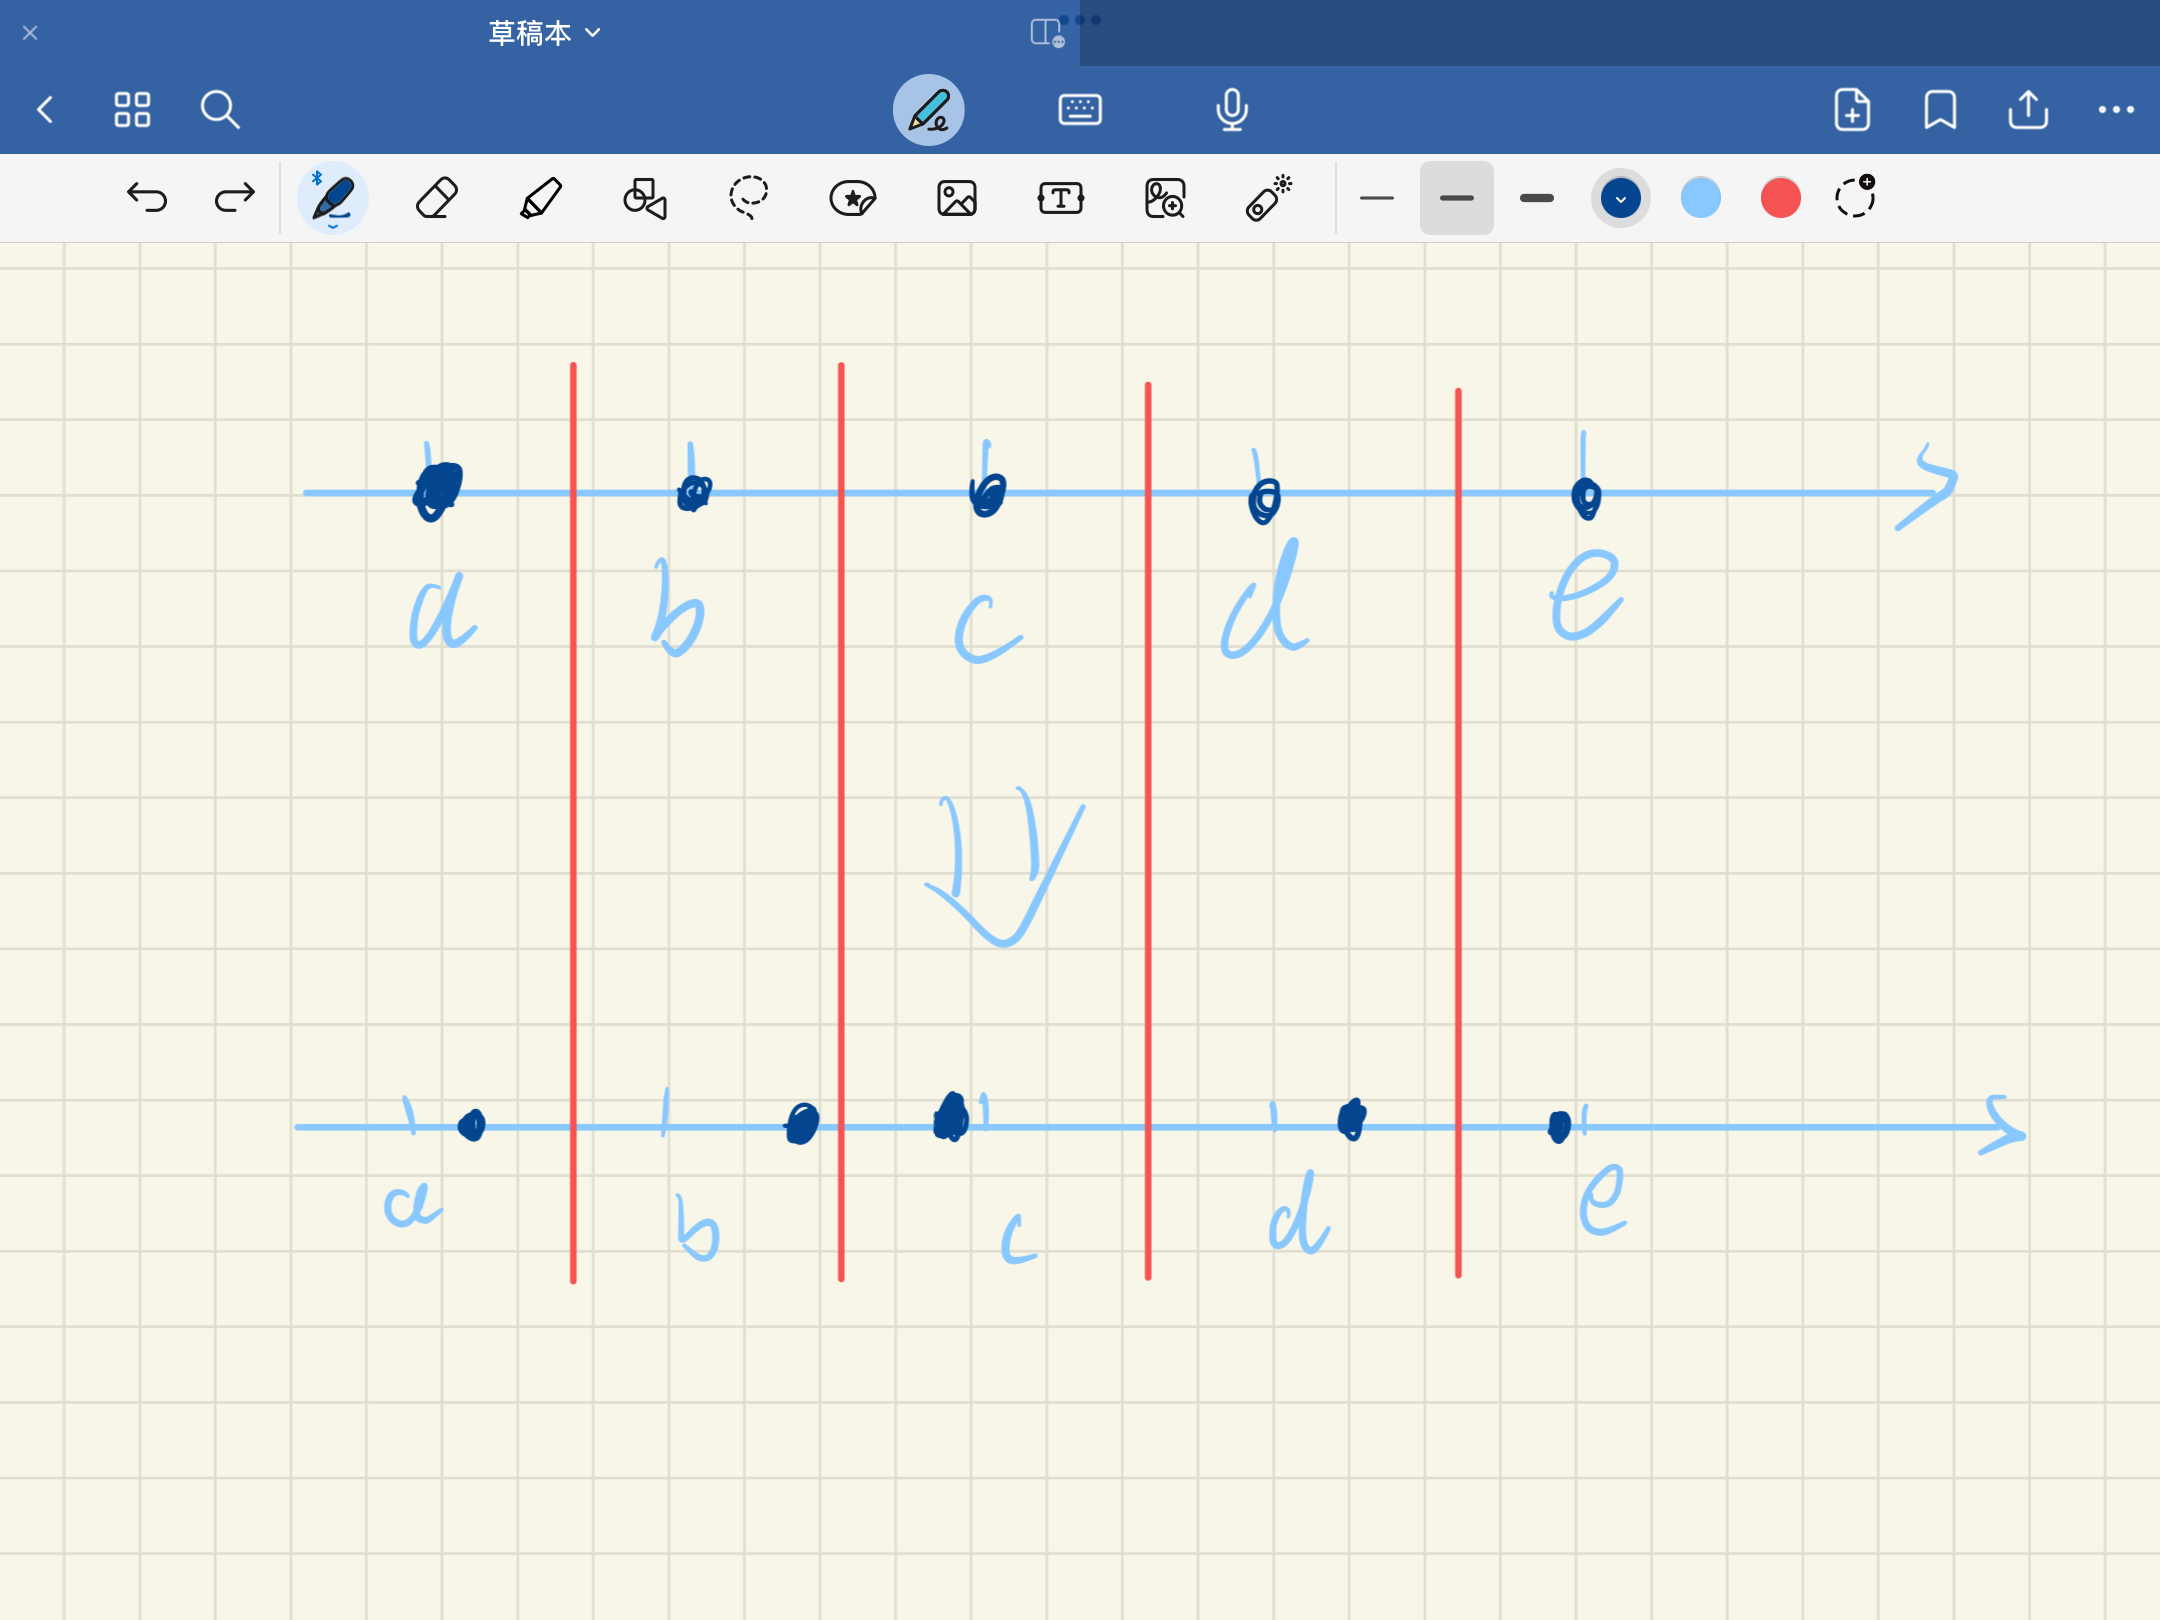 草稿本
a b c d e
a b c d e